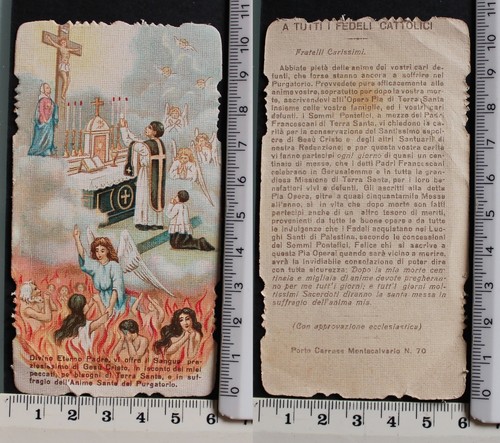 Divino Eterno Padre, vi offro il Sangue pre-
ziosissimo di Gesù Cristo, in isconto dei miei
peccati, pe' bisogni di Terra Santa, e in suf-
fragio dell'Anime Sante del Purgatorio.
A TUTTI I FEDELI CATTOLICI
Fratelli Carissimi.
Abbiate pietà delle anime dei vostri cari de-
funti, che forse stanno ancora a soffrire nel
Purgatorio. Provvedete pure efficacemente alla
anima vostra, sopratutto per dopo la vostra mor-
te, ascrivendovi all'Opera Pia di Terra Santa
insieme colle vostre famiglie, ed i vostri cari
defunti. I Sommi Pontefici, a mezzo dei Padri
Francescani di Terra Santa, vi chiedono la ca-
rità per la conservazione del Santissimo sepol-
cro di Gesù Cristo e degli altri Santuarii di
nostra Redenzione; e per questa vostra carità
vi fanno partecipi ogni giorno di quasi un cen-
tinaro di messe, che i detti Padri Francescani
celebrano in Gerusalemme e in tutta la gran-
diosa Missione di Terra Santa, per i loro be-
nefattori vivi e defunti. Gli ascritti alla detta
Pia Opera, oltre a quasi cinquantamila Messe
all'anno, sì in vita che dopo morte son fatti
partecipi anche di un altro tesoro di meriti,
provenienti da tutte le buone opere e da tutte
le indulgenze che i Fedeli acquistano nei Luo-
ghi Santi di Palestina, secondo le concessioni
dei Sommi Pontefici. Felice chi si ascrive a
questa Pia Opera! quando sarà vicino a morire,
avrà la invidiabile consolazione di poter dire
con tutta sicurezza: Dopo la mia morte cen-
tinaia e migliaia di anime devote pregheran-
no per me tutt'i giorni; e tutt'i giorni mol-
tissimi Sacerdoti diranno la santa messa in
suffragio dell'anima mia.
(Con approvazione ecclesiastica)
Porto Carrese Montecalvario N. 70
1 2 3 4 5 6
1 2 3 4 5 6
1 2 3 4 5 6 7 8 9 10 11 12 13
1 2 3 4 5 6 7 8 9 10 11 12 13